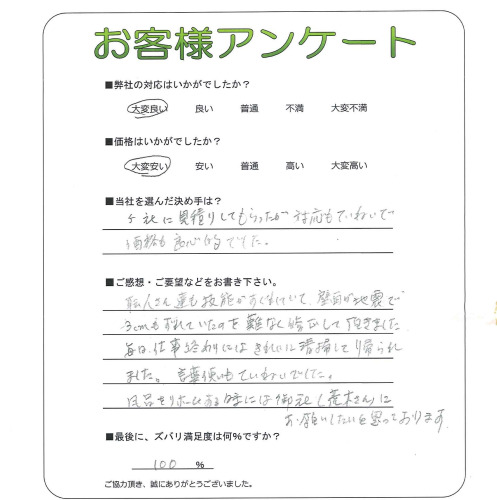 お客様アンケート
■弊社の対応はいかがでしたか？
大変良い 良い 普通 不満 大変不満
■価格はいかがでしたか？
大変安い 安い 普通 高い 大変高い
■当社を選んだ決め手は？
5社に見積りしてもらったが対応もていねいで
価格も良心的でした。
■ご感想・ご要望などをお書き下さい。
職人さん達も技能がすぐれていて、壁面が地震で
3cmもずれていたのを難なく修正して頂きました
毎日、仕事終わりにはきれいに清掃して帰られ
ました。言葉使いもていねいでした。
風呂をリホームする時には御社(荒木さん)に
お願いしたいと思っております。
■最後に、ズバリ満足度は何%ですか？
100 %
ご協力頂き、誠にありがとうございました。